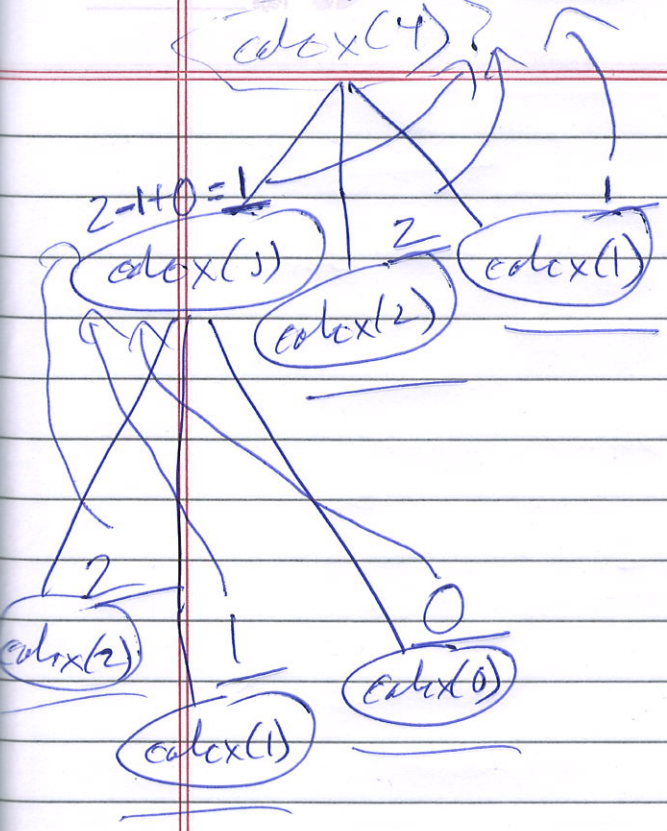 calcx(4)?
2-1+0=1
1
calcx(3)
2
calcx(1)
calcx(2)
2
1
0
calcx(2)
calcx(0)
calcx(1)